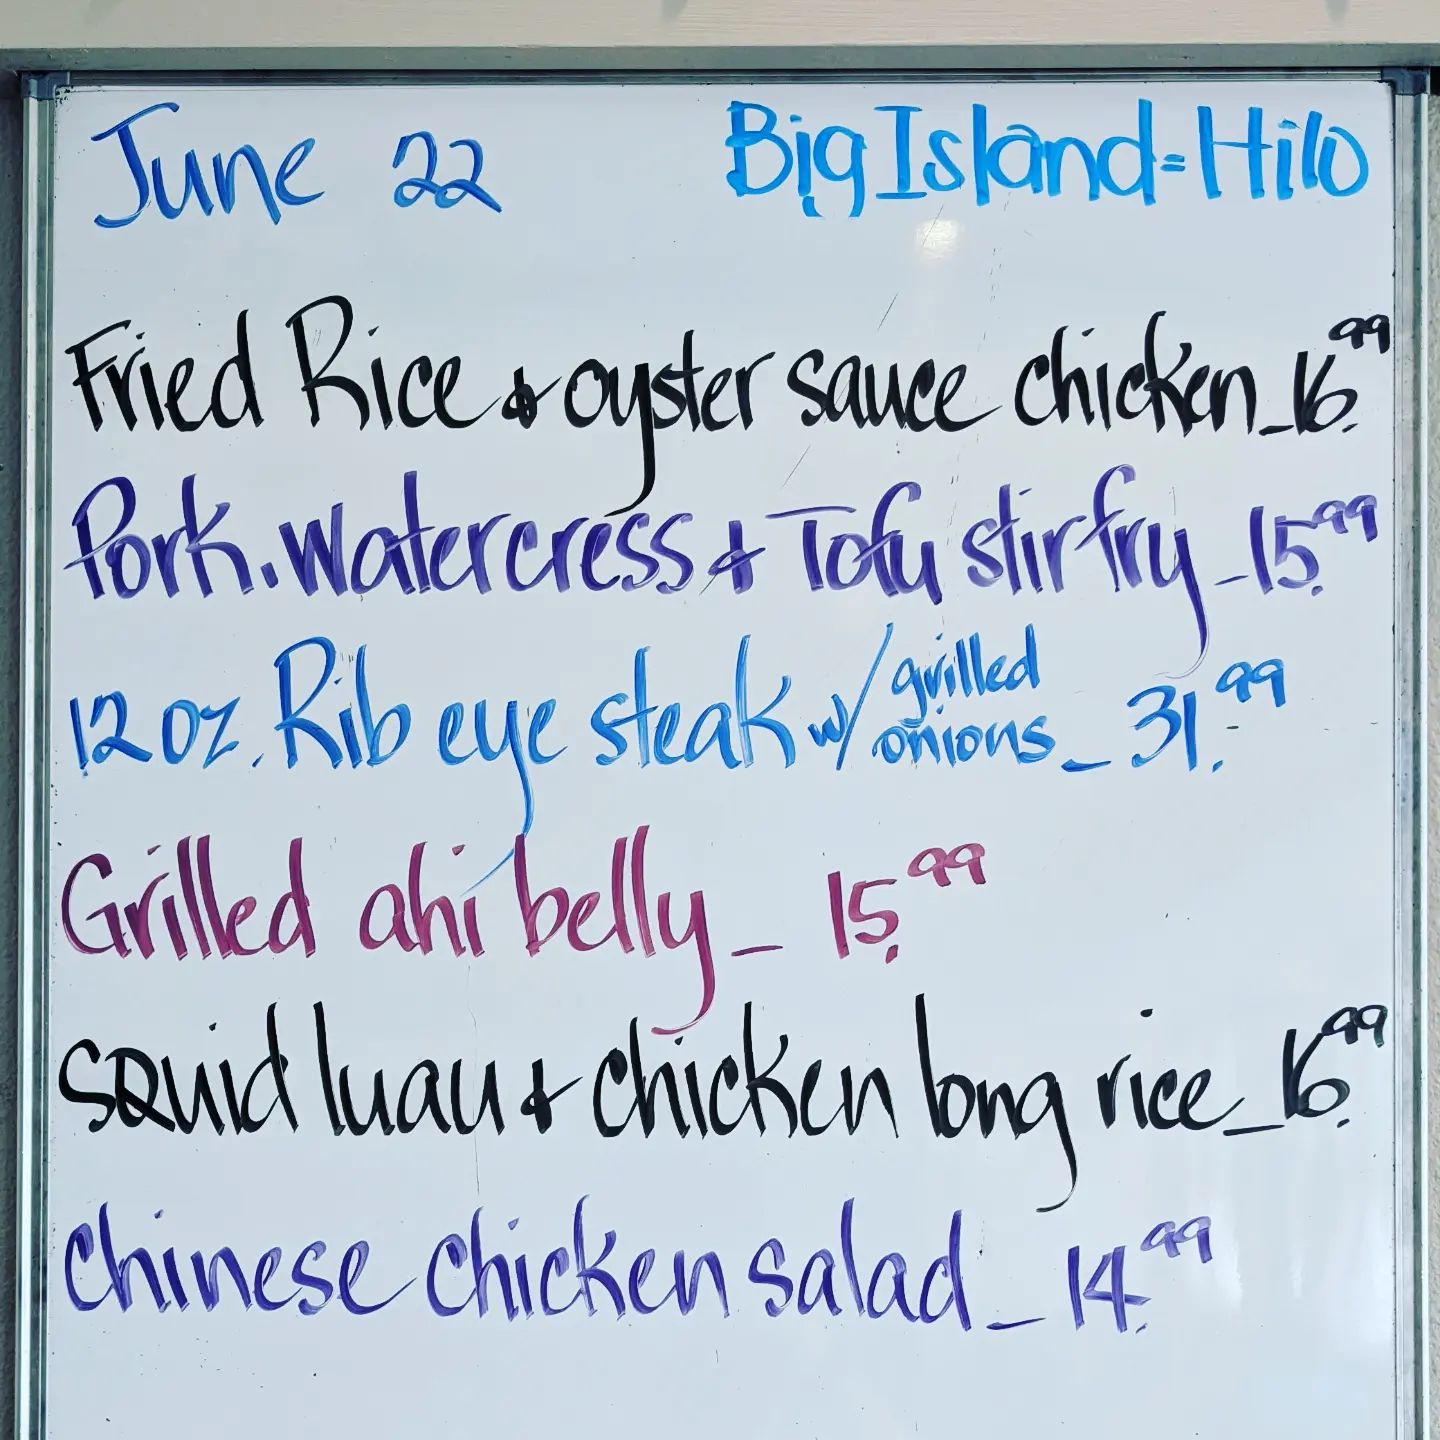 June 22 Big Island=Hilo
Fried Rice & oyster sauce chicken_16.99
Pork, Watercress & Tofu stirfry_15.99
12oz. Rib eye steak w/ grilled onions_31.99
Grilled ahi belly_15.99
Squid luau & chicken long rice_16.99
Chinese chicken salad_14.99